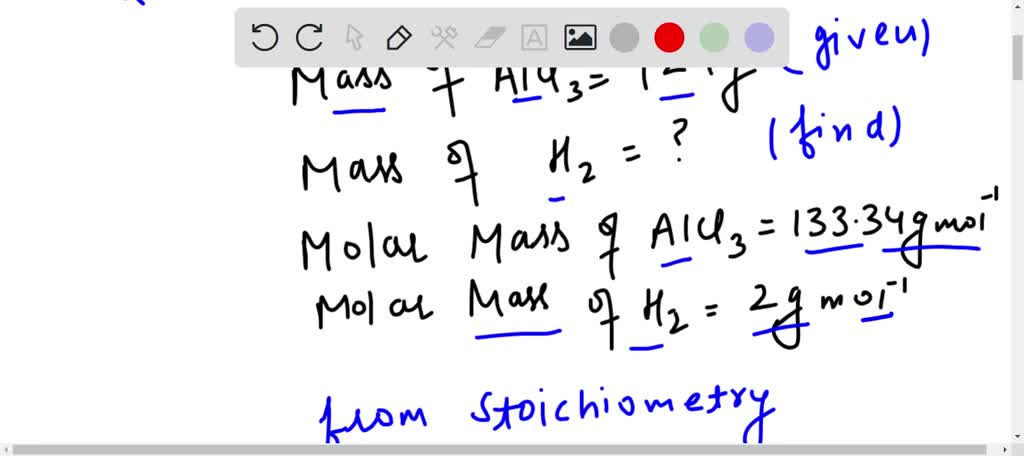 (given)
Mass of AlCl3 =
(find)
Mass of H2 = ?
Molar Mass of AlCl3 = 133.34 g mol-1
Molar Mass of H2 = 2 g mol-1
from stoichiometry